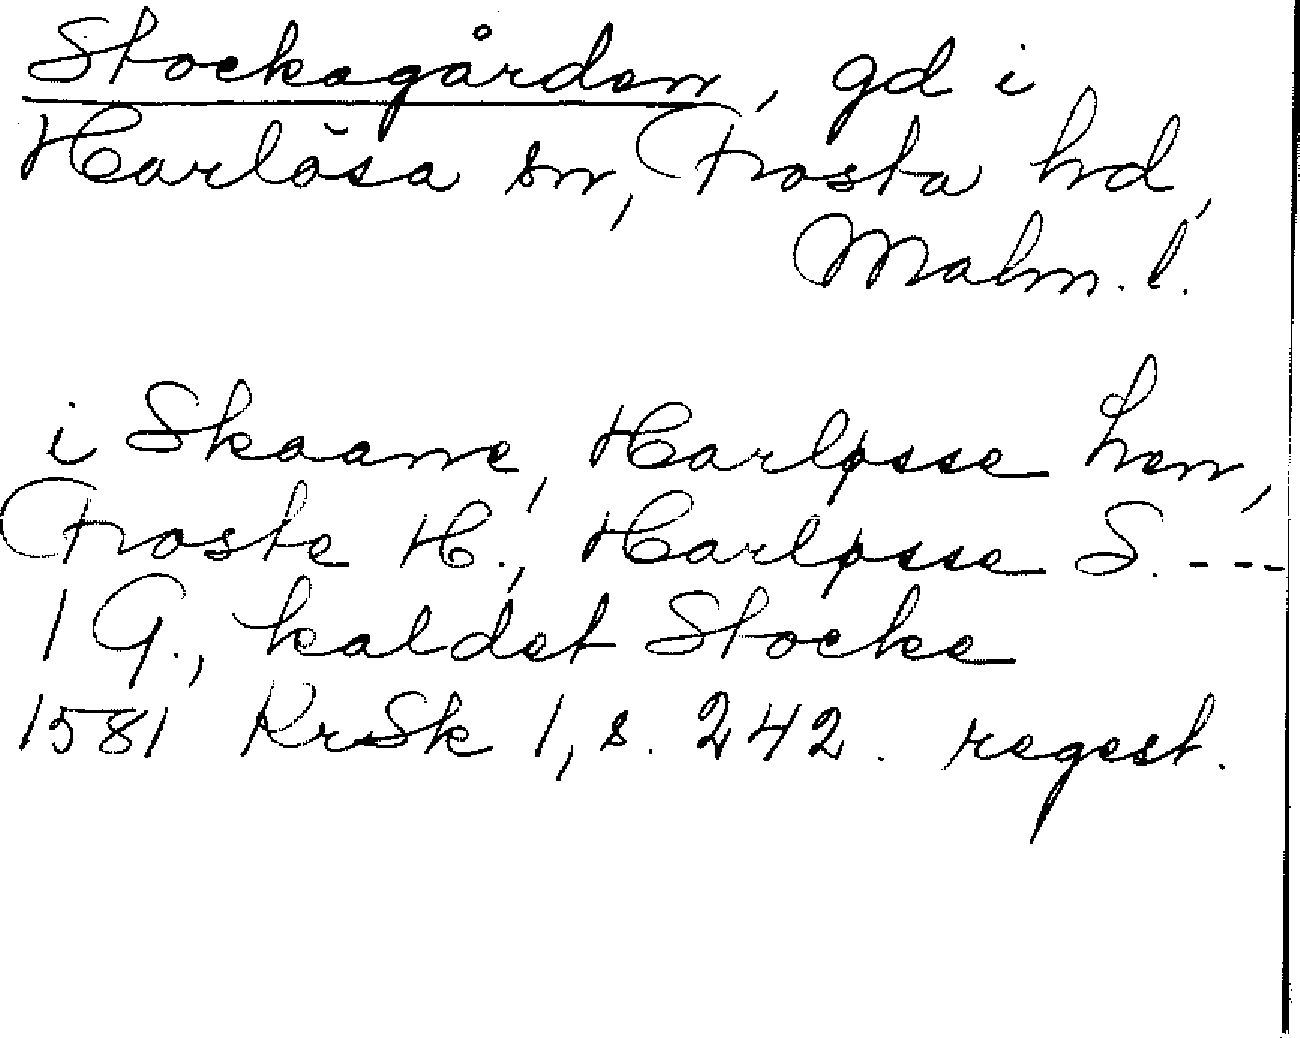 Stockagården, gd i
Harlösa sn, Frosta hd,
Malm. l.
i Skaane, Harløsse Len,
Froste H., Harløsse S. ---
1 G., kaldet Stocke
1581 KrSk 1, s. 242. regest.